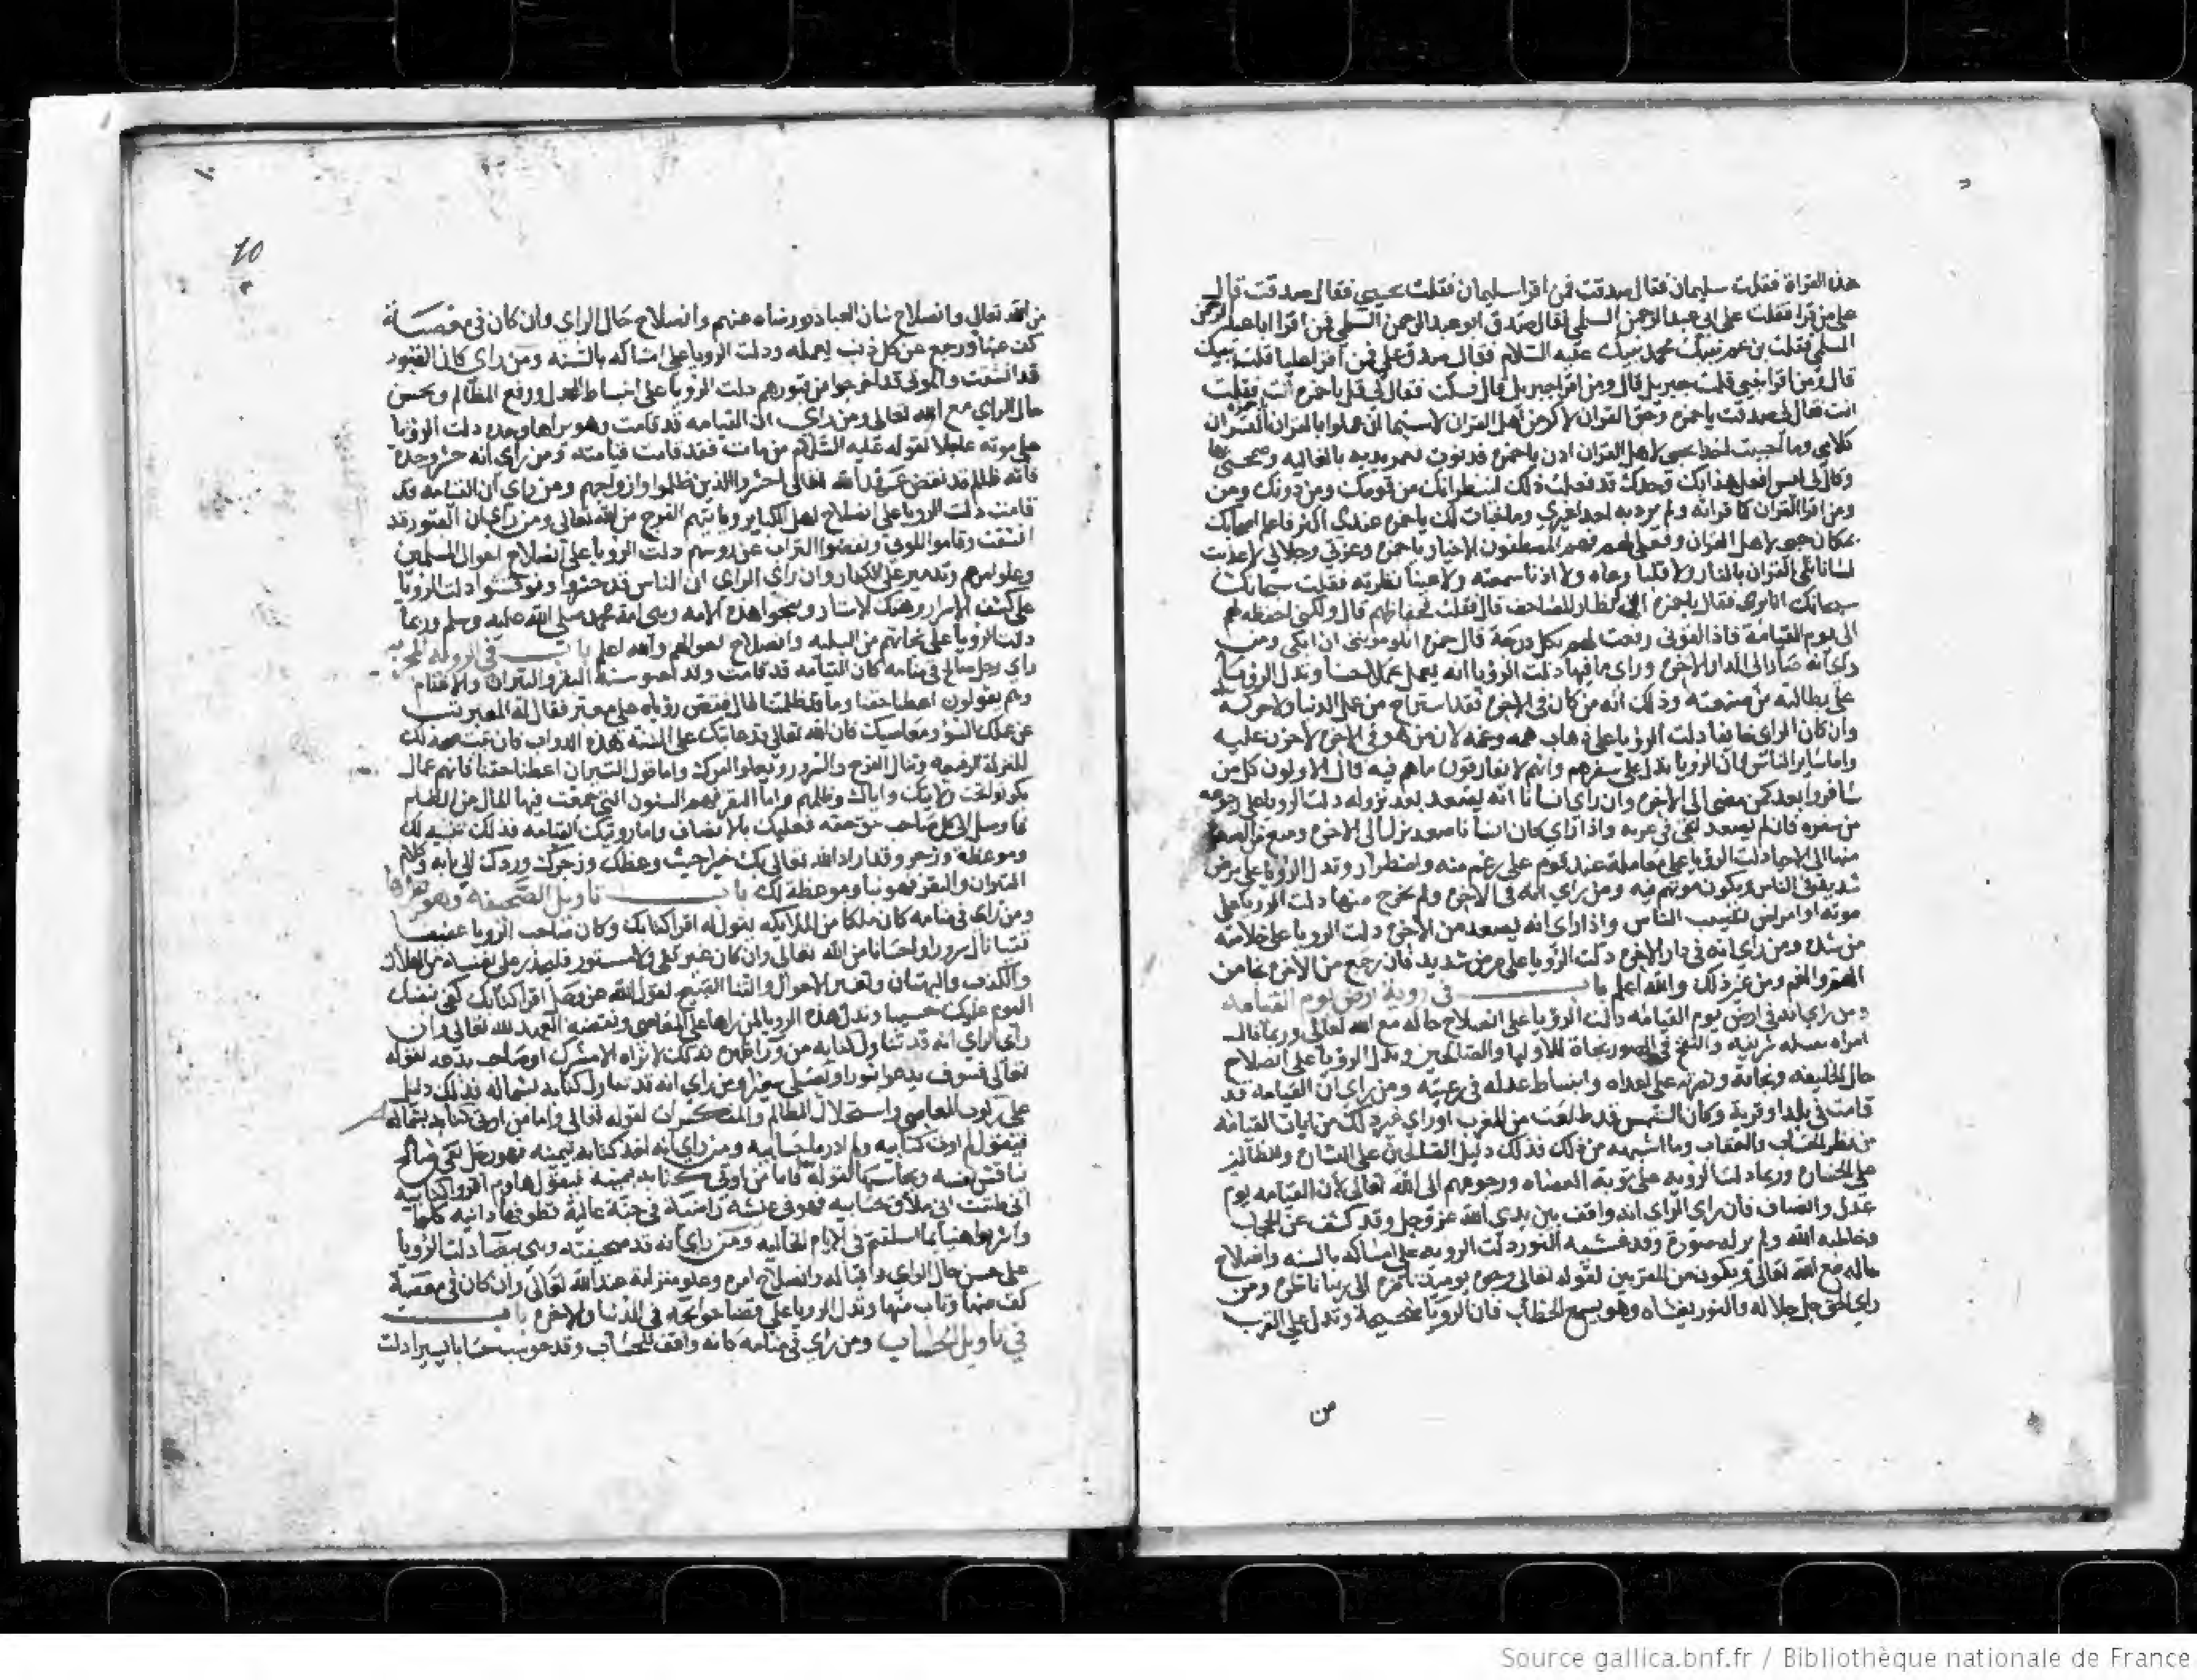 هذه القراة فقلت سليمان فقال صدقت فمن اقرا سليمان فقلت يحيى فقال صدقت قال
على من قرا فقلت على ابي عبد الرحمن السلمي فقال صدق ابو عبد الرحمن السلمي فمن اقرا ابا عبد الرحمن
السلمي فقلت بن عم نبيك محمد نبيك عليه السلام فقال صدق علي فمن اقرا عليا قلت نبيك
قال ومن اقرا نبيي قلت جبريل قال ومن اقرا جبريل قال فسكت فقال لي قل يا حمزه انت فقلت
انت فقال لي صدقت يا حمزه وحق القران لاكرمن اهل القران لا سيما ان عملوا بالقران القران
كلامي وما احببت احدا كحبي لاهل القران ادن يا حمزه فدنوت يديه بالغاليه
وقال لي ليس افعل هذا بك وحدك قد فعلت ذلك بنظرائك من فوقك ومن دونك ومن
ومن اقرا القران كما قراته ولم يرد به احد غيري وما خبات لك يا حمزه عندي اكثر فاعلم اصحابك
بمكان حبي لاهل القران وفعلي بهم فهم المصطفون الاخيار يا حمزه وعزتي وجلالي لا عذبت
لسانا تلى القران بالنار ولا قلبا وعاه ولا اذنا سمعته ولا عينا نظرته فقلت سبحانك
سبحانك فقال يا حمزه نظار المصاحف قال فقلت حفاظهم قال ولكني احفظه لهم
الى يوم القيامة فاذا لقوني رفعت لهم بكل درجة قال حمزه افلوموني ان ابكي ومن
راى انه صار الى الدار الاخره وراى ما فيها دلت الرويا انه يعمل عملا حسنا وتدل الرؤيا
على بطالته من صنعته وذلك انه من كان في الاخره فقد استراح من عمل الدنيا والحركه
وان كان الراي خايفا دلت الرؤيا على ذهاب همه وغمه لان من هو في الاخره لا حزن عليه
واما ساير الناس فان الرؤيا تدل على سفرهم وانهم لا يفارقون ما هم فيه قال الاولون كل من
سافروا بعد كمن مضى الى الاخره وان راى انسانا انه يصعد بعد نزوله دلت الرويا على رجوعه
من سفره فان لم يصعد بقي في غربه واذا راى كان انسانا صعد نزل الى الاخره
دلت الرؤيا على معاملة عند قوم على رغم منه واضطرار وتدل الرؤيا على مرض
شديد في الناس ويكون موتهم فيه ومن راى انه في الاخره ولم يخرج منها دلت الرويا على
موته او امراض تصيب الناس واذا راى انه يصعد من الاخره دلت الرويا على خلاصه
من شده ومن راى انه في دار الاخره دلت الرؤيا على مرض شديد فان رجع من الاخره نجا من
الهم والغم ومن غير ذلك والله اعلم باب في روية ارض يوم القيامه
ومن راى انه في ارض يوم القيامه دلت الرؤيا على انصلاح حاله مع الله تعالى وربما نال
امراه جميله شريفه والنفخ في الصور نجاة للاوليا والصالحين وتدل الرؤيا على انصلاح
حال الخليفه ونجاته ونصره على اعداه وانبساط عدله في رعيته ومن راى ان القيامه قد
قامت في بلد او قرية وكان الشمس قد طلعت من المغرب او راى غير ذلك من ايات القيامه
من نظر الحساب والعقاب وما اشبه من ذلك فذلك دليل الصالحين على البشارة وللظالمين
على الخسارة وربما دلت الرويه على توبة العصاه ورجوعهم الى الله تعالى لان القيامه يوم
عدل وانصاف فان راى الراي انه واقف بين يدي الله عز وجل وقد كشف عنه الحجاب
وخاطبه الله ولم ير له صورة وقد غشيه النور دلت الرويه على امساكه بالسنه وانصلاح
حاله مع الله تعالى ويكون من المقربين لقوله تعالى وجوه يومئذ ناضرة الى ربها ناظرة ومن
راى الحق جل جلاله والنور يغشاه وهو يسمع الخطاب فان الرويا صحيحة وتدل على القرب
من
10
من الله تعالى وانصلاح شان العباد ورضاه عنهم وانصلاح حال الراي وان كان في معصية
كف عنها ورجع عن كل ذنب يعمله ودلت الرويا على امساكه بالسنه ومن راى كان القبور
قد انشقت والموتى قد اخرجوا من قبورهم دلت الرويا على انبساط العدل ورفع المظالم وبحسن
حال الراي مع الله تعالى ومن راى ان القيامه قد قامت وهو يراها وحده دلت الرؤيا
على موته عاجلا لقوله عليه السلام من مات فقد قامت قيامته ومن راى انه حشر وحده
فانه ظالم قد نقض عهد الله لقوله تعالى احشروا الذين ظلموا وازواجهم ومن راى ان القيامه قد
قامت دلت الرويا على انصلاح اهل الكباير وياتيهم الفرج من الله تعالى ومن راى ان القبور قد
انشقت وقاموا الموتى ونفضوا التراب عن رؤسهم دلت الرؤيا على انصلاح احوال المسلمين
وعلو امرهم وتدمير على الكفار وان راى الراي ان الناس قد حشروا ونوقشوا دلت الرؤيا
على كشف الاسرار وهتك الاستار وينجوا هذه الامه وهي امة محمد صلى الله عليه وسلم وربما
دلت الرؤيا على نجاتهم من البليه وانصلاح احوالهم والله اعلم باب في الروية المجربه
راى رجل صالح في منامه كان القيامه قد قامت ولقد البقر والثيران والاغنام
وهم يقولون اعطنا حقنا وما قد ظلمتنا قال فقص رؤياه على معبر فقال له المعبر تب
عن عملك السؤ ومعاصيك فان الله تعالى قد عاتبك على السنه هذه الدواب فان تبت
المنزلة الرفيعه وتنال الفرح والسرور وتعلو امرك واما قول الثيران اعطنا حقنا فانهم عمال
يكونوا تحت ولايتك واياك وظلمهم واما البقر فهم السنون التي جمعت فيها المال من الظلم
فاوصل الى كل صاحب حق حقه فعليك بالانصاف واما رويتك القيامه فذلك تنبيه لك
وموعظة وزجر وقد اراد الله تعالى بك خيرا حيث وعظك وزجرك وردك الى بابه وكلام
الثيران والبقر فهو نبا وموعظة لك باب تاويل الصحيفه وهو
ومن راى في منامه كان ملكا من الملايكه يقول له اقرا كتابك وكان صاحب الرؤيا عفيفا
تقيا نال سرورا واحسانا من الله تعالى وان كان غير تقي ولا مستور فليحذر على نفسه من الهلاك
والكذب والبهتان وتغير الاحوال والثنا القبيح لقول الله عز وجل اقرا كتابك كفى بنفسك
اليوم عليك حسيبا وتدل هذه الرويا لمن راها على المعاصي ونقضه العهد لله تعالى وان
راى الراي انه قد تناول كتابه من ورا ظهره فذلك لا يراه الا مشرك او صاحب بدعه لقوله
تعالى فسوف يدعوا ثبورا ويصلى سعيرا ومن راى انه قد تناول كتابه بشماله فذلك دليل
على ركوب المعاصي واستحلال المظالم والمنكرات لقوله تعالى واما من اوتي كتابه بشماله
فيقول لم اوت كتابيه ولم ادر ما حسابيه ومن راى انه اخذ كتابه بيمينه فهو رجل تقي صالح
يناقش نفسه ويحاسبها لقوله تعالى فاما من اوتي كتابه بيمينه فيقول هاوم اقروا كتابيه
اني ظننت اني ملاق حسابيه فهو في عيشة راضية في جنة عالية قطوفها دانيه كلوا
واشربوا هنيا بما اسلفتم في الايام الخاليه ومن راى انه قد صحيفته وهي بيضا دلت الرويا
على حسن حال الراي واقباله وانصلاح امره وعلو منزلته عند الله تعالى وان كان في معصية
كف عنها وتاب منها وتدل الرويا على قضا حوايجه في الدنيا والاخره باب
في تاويل الحساب ومن راى في منامه كانه واقف للحساب وقد حوسب حسابا يسيرا دلت
Source gallica.bnf.fr / Bibliothèque nationale de France